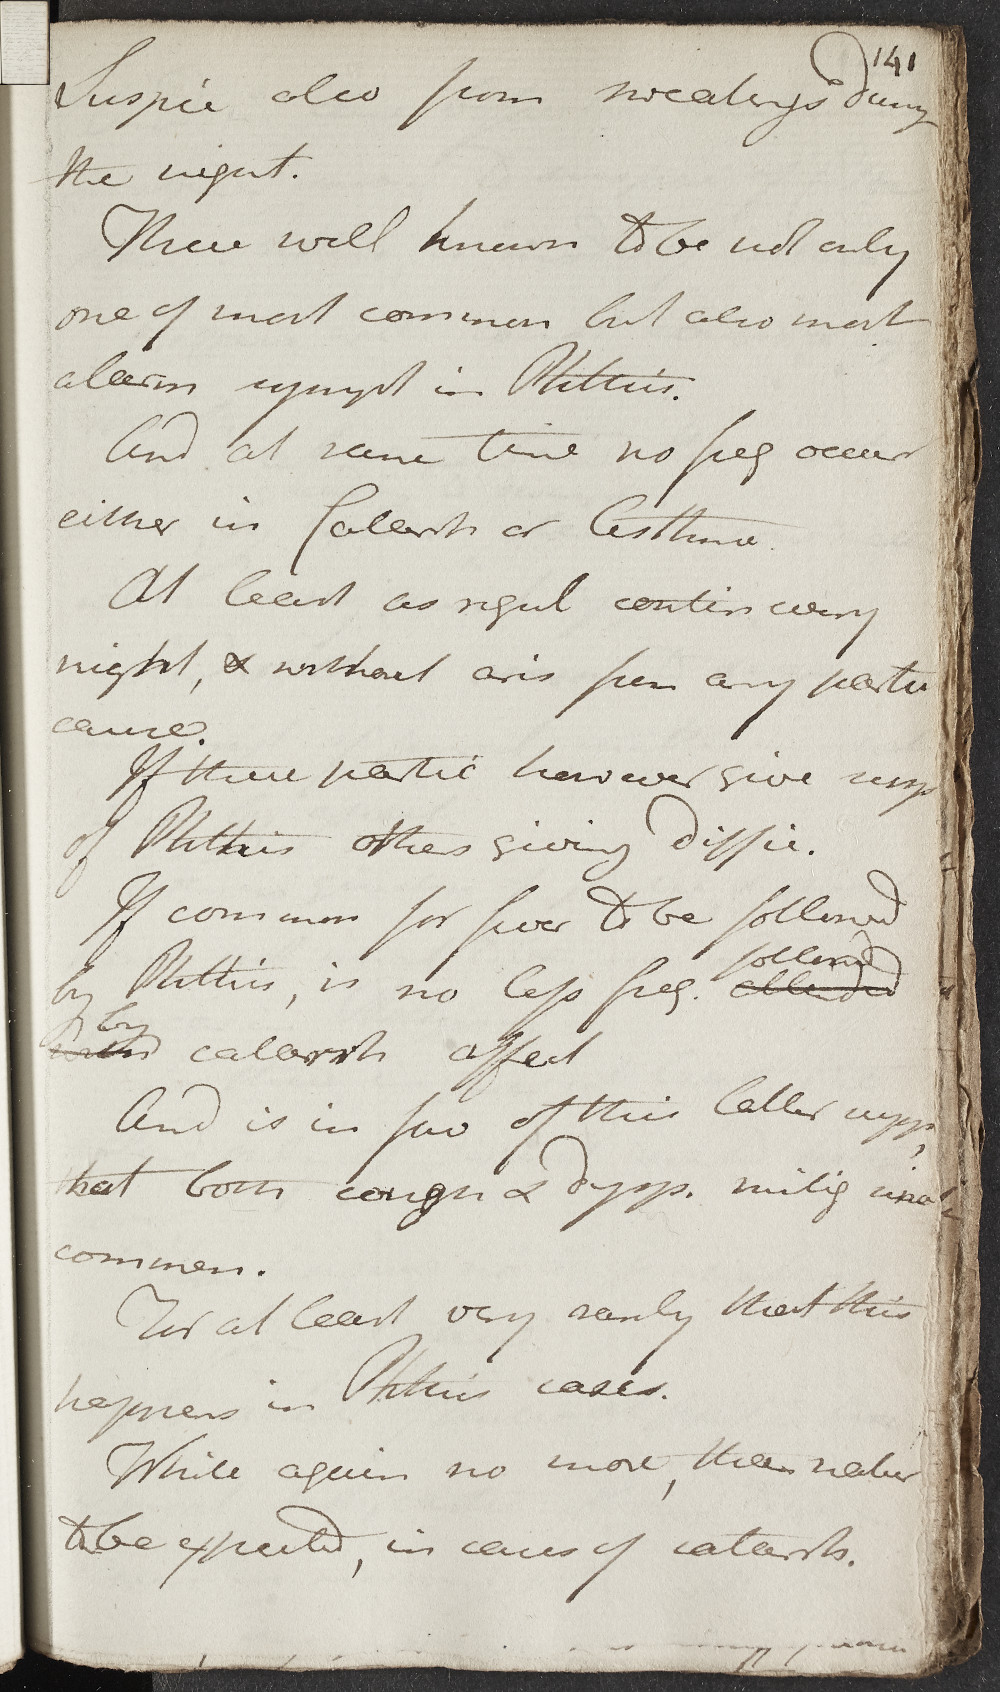 141
Suspic also from sweatings during
the night.
These well known to be not only
one of most common but also most
alarm sympt in Phthisis.
And at same time no freq occur
either in Catarrh or Asthma.
At least as regul contin every
night, & without aris from any partic
cause.
If these partic however give susp
of Phthisis others giving diffic.
If common for fever to be followed
by Phthisis, is no less freq. followed
attended
by
with catarrh affect
And is in fav of this latter supp,
that both cough & dysp. mitig
common.
For at least very rarely that this
happens in Phthisis cases.
While again no more, than natur
to be expected, in cases of catarrh.